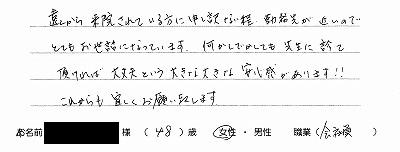 遠くから来院されている方に申し訳ない程、勤務先が近いので
とてもお世話になっています。何かしでかしても先生に診て
頂ければ大丈夫という大きな大きな安心感があります!!
これからも宜しくお願い致します
お名前 様 (48) 歳 女性・男性 職業 (会社員 )